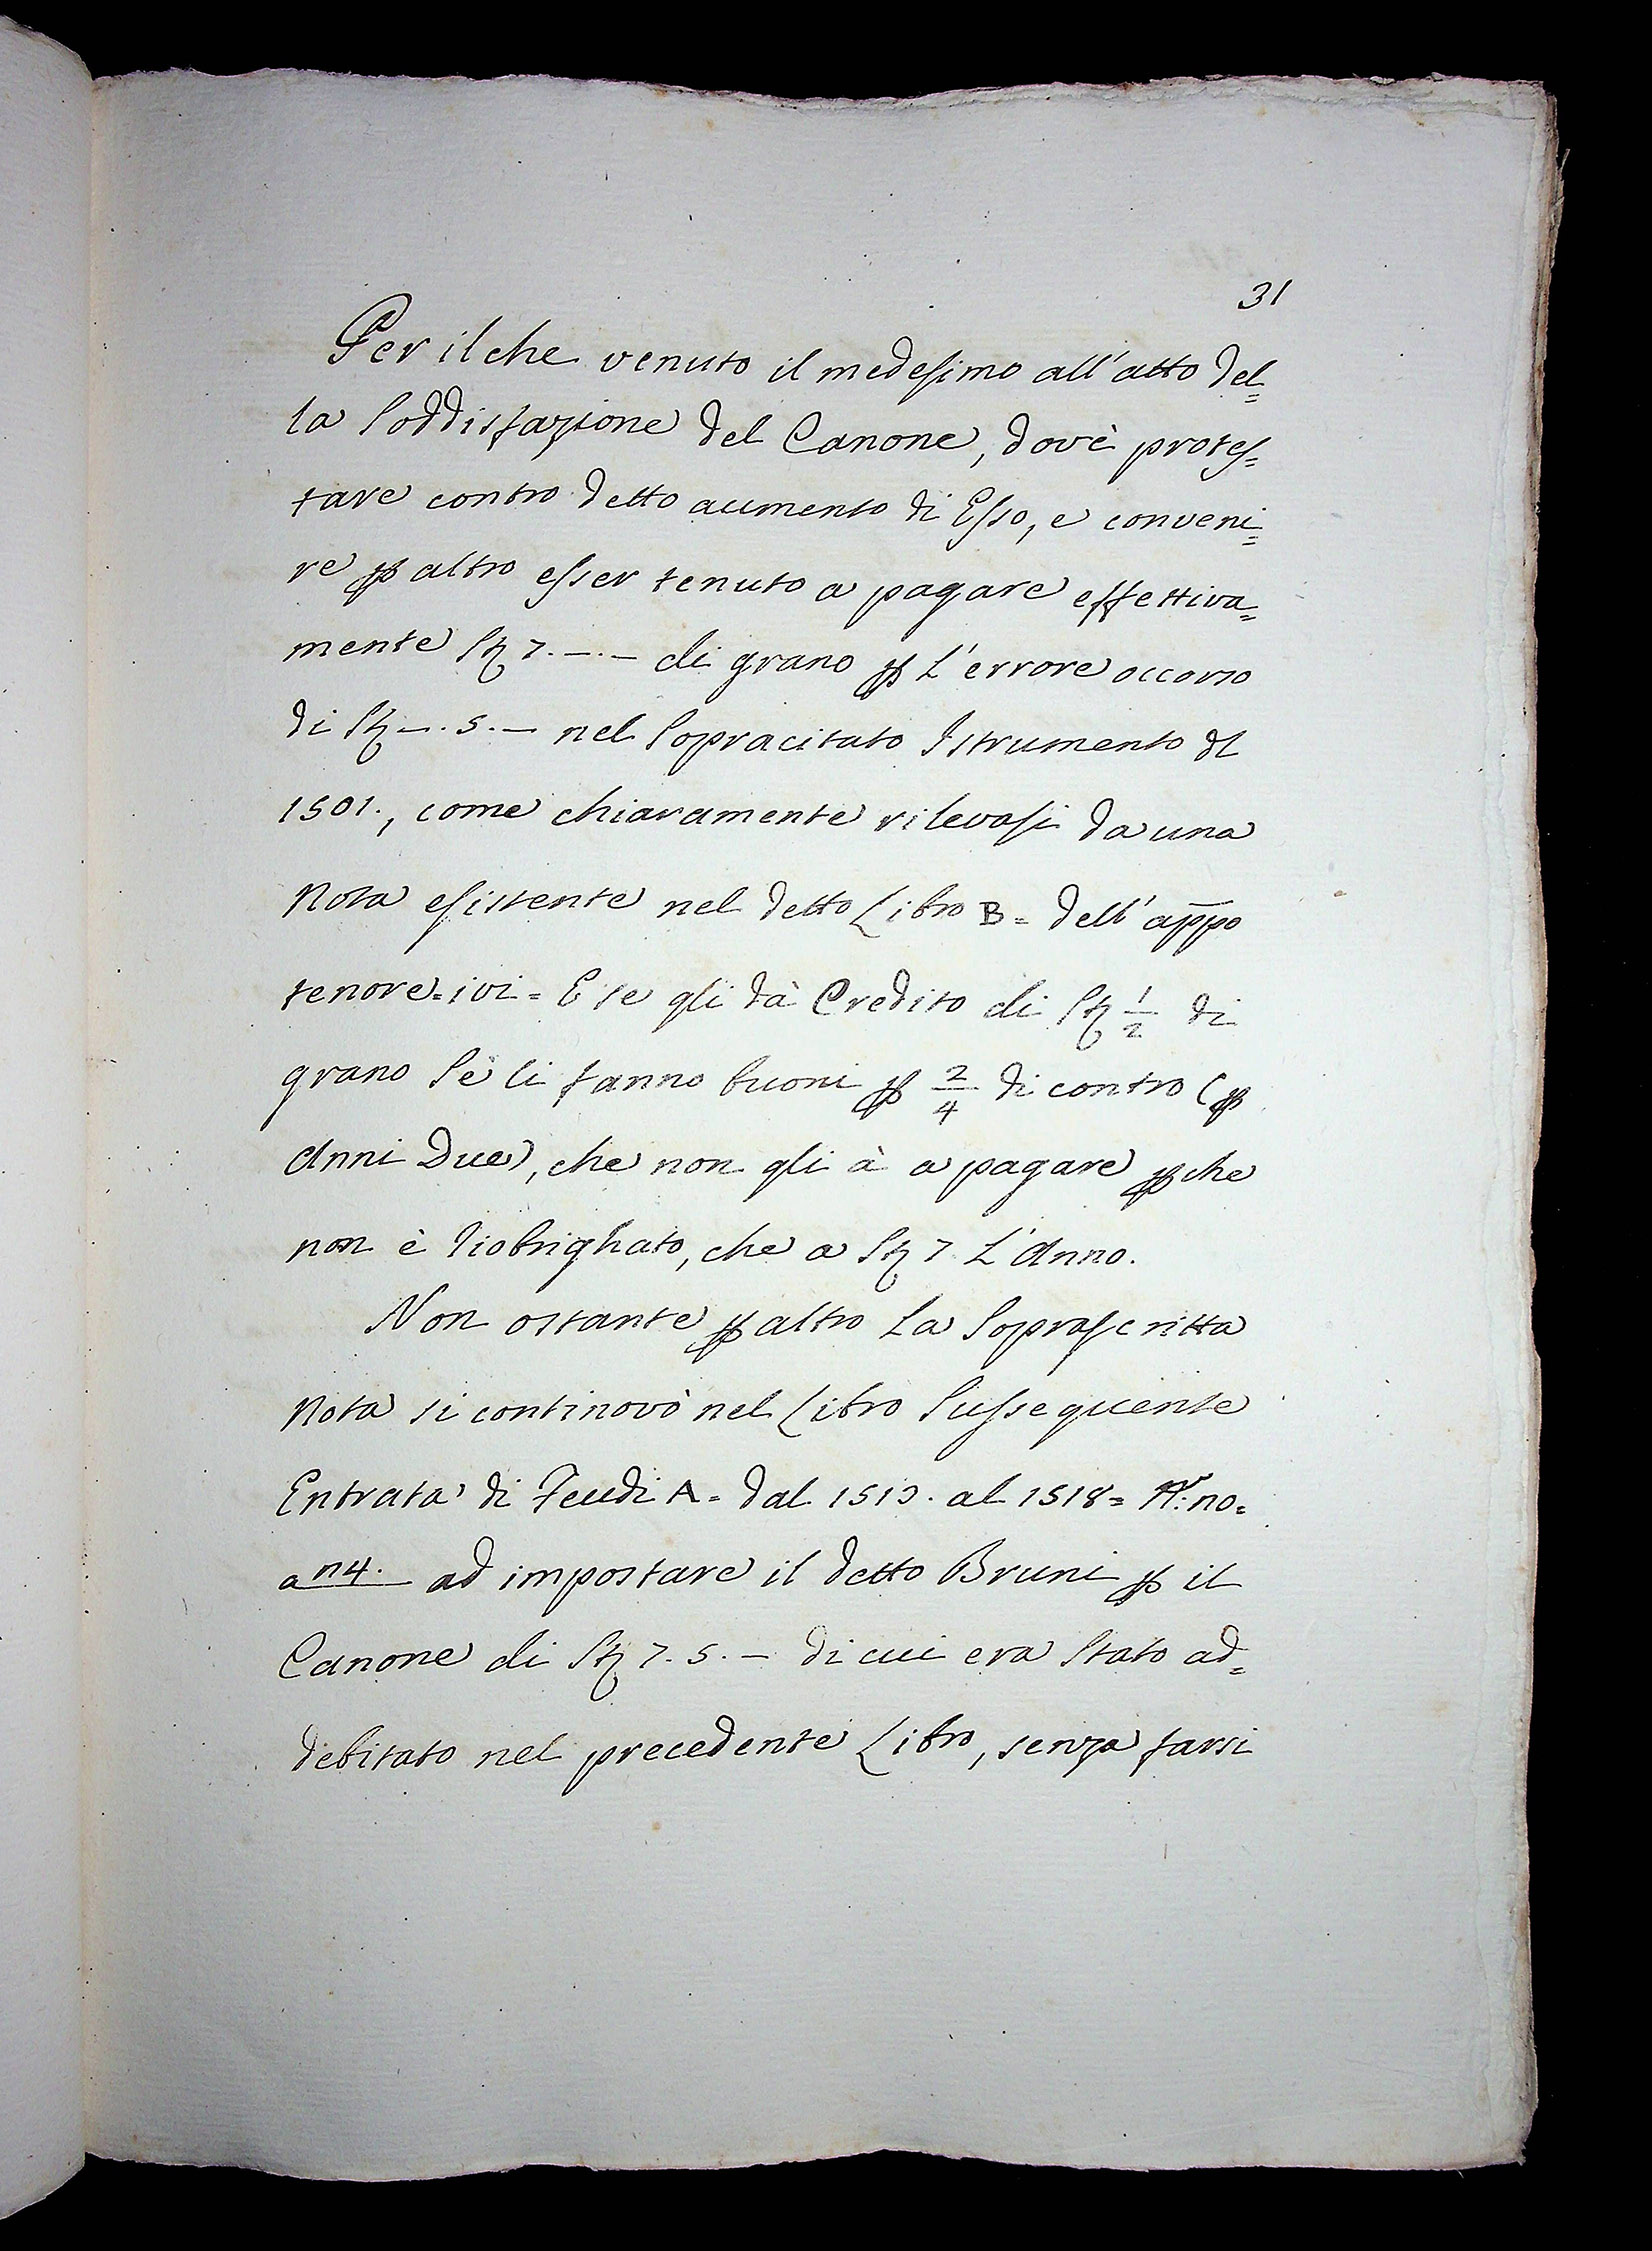 31
Per il che venuto il medesimo all'atto del=
la Soddisfazione del Canone, dovè protes=
tare contro detto aumento di Esso, e conveni=
re ꝑ altro esser tenuto a pagare effettiva=
mente St͠a 7.—.— di grano ꝑ L'errore occorso
di St͠a —.5.— nel Sopracitato Istrumento dl
1501., come chiaramente rilevasi da una
Nota esistente nel detto Libro B= dell'app̄o
tenore=ivi= E se gli dà Credito di St͠a 1/2 di
grano Se li fanno buoni ꝑ 2/4 di contro (ꝑ
Anni Due), che non gli à a pagare ꝑche
non è Hobrighato, che a St͠a 7 L'Anno.
Non ostante ꝑ altro La Soprascritta
Nota si continovò nel Libro Susseguente
Entrata di Feudi A= dal 1513. al 1518= no=
a n4. ad impostare il detto Bruni ꝑ il
Canone di St͠a 7.5.— di cui era Stato ad=
debitato nel precedente Libro, senza farsi